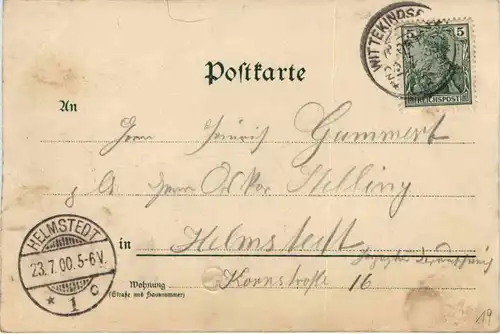 WITTEKINDS
5 5
REICHSPOST
Postkarte
An
Herrn Heinrich Gummert
Herrn Oskar Stelling
in Helmstedt
Wohnung
(Straße und Hausnummer)
Kornstraße 16
HELMSTEDT
23.7.00.5-6V.
* 1 c
19